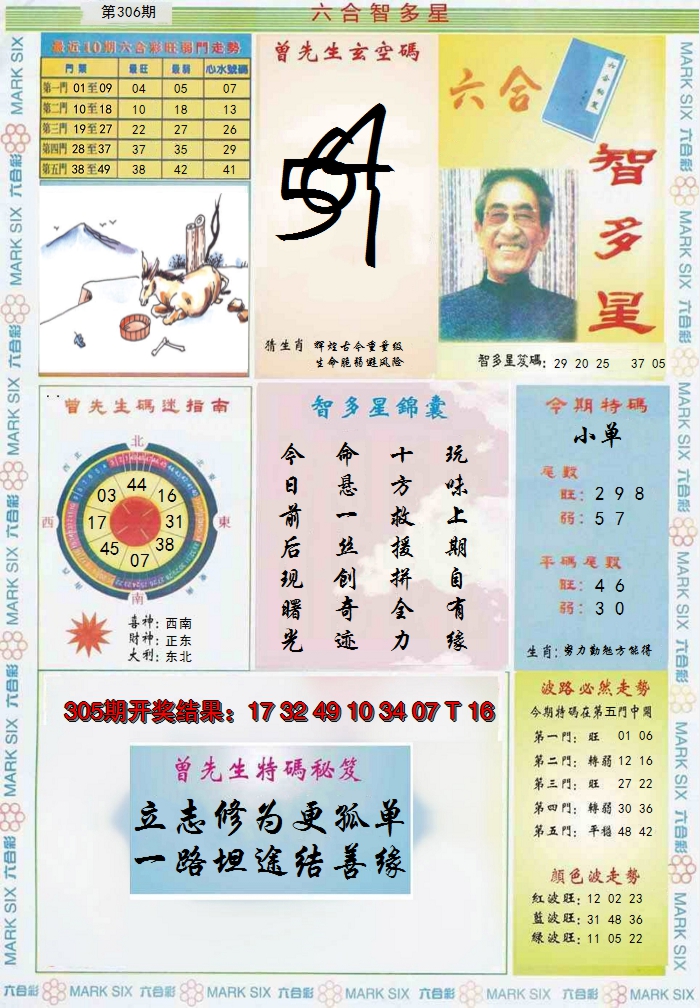 第306期
六合智多星
最近10期六合彩旺弱門走勢
門類 最旺 最弱 心水號碼
第一門 01至09 04 05 07
第二門 10至18 10 18 13
第三門 19至27 22 27 26
第四門 28至37 37 35 29
第五門 38至49 38 42 41
曾先生玄空碼
猜生肖 辉煌古今重量级
生命脆弱避风险
六合
六合秘笈
智多星
智多星笈碼: 29 20 25 37 05
曾先生碼迷指南
北
西北
東北
西
東
西南
東南
南
44
03 16
17 31
45 38
07
喜神: 西南
財神: 正东
大利: 东北
智多星錦囊
玩味上期自有缘
十方救援拼全力
命悬一丝创奇迹
今日前后现曙光
今期特碼
小单
尾數
旺: 2 9 8
弱: 5 7
平碼尾數
旺: 4 6
弱: 3 0
生肖: 努力勤勉方能得
305期开奖结果: 17 32 49 10 34 07 T 16
曾先生特碼秘笈
立志修为更孤单
一路坦途结善缘
波路必然走勢
今期特碼在第五門中開
第一門: 旺 01 06
第二門: 轉弱 12 16
第三門: 旺 27 22
第四門: 轉弱 30 36
第五門: 平穩 48 42
顔色波走勢
紅波旺: 12 02 23
藍波旺: 31 48 36
綠波旺: 11 05 22
六合彩 MARK SIX 六合彩 MARK SIX 六合彩 MARK SIX 六合彩 MARK SIX 六合彩